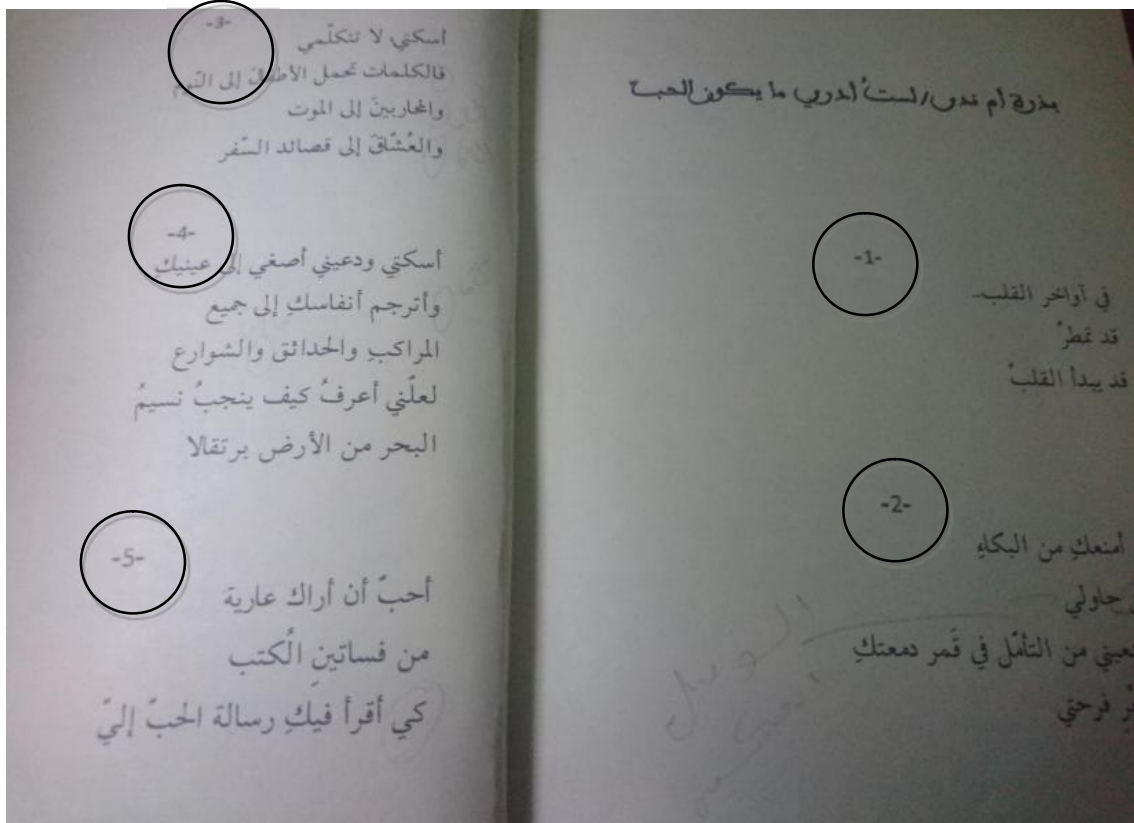 بذرة أم ندى/لست أدري ما يكون الحب
-1-
في آواخر القلب..
قد تمطرُ
قد يبدأ القلبُ
-2-
أمنعكِ من البكاءِ
حاولي
من التأمّل في قَمر دمعتكِ
فرحتي
-3-
أسكتي، لا تتكلّمي
فالكلمات تحمل الأطفالَ إلى النّوم
والمحاربينَ إلى الموت
والعُشّاقَ إلى قصائد السّفر
-4-
أسكتي ودعيني أصغي إلى عينيكِ
وأترجم أنفاسكِ إلى جميع
المراكبِ والحدائق والشوارع
لعلّني أعرفُ كيف ينجبُ نسيمُ
البحر من الأرض برتقالا
-5-
أحبّ أن أراك عارية
من فساتينِ الُكتب
كي أقرأ فيكِ رسالة الحبّ إليّ